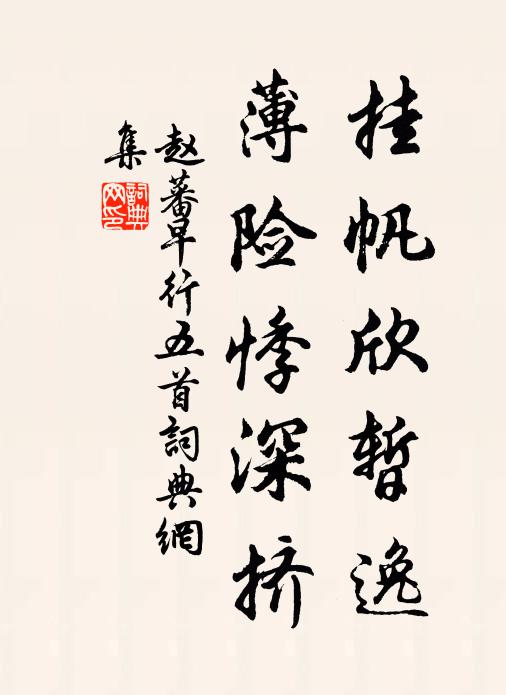 挂帆欣暂逸
薄险悸深挤
赵蕃早行五首詞典網
集
詞典
网印